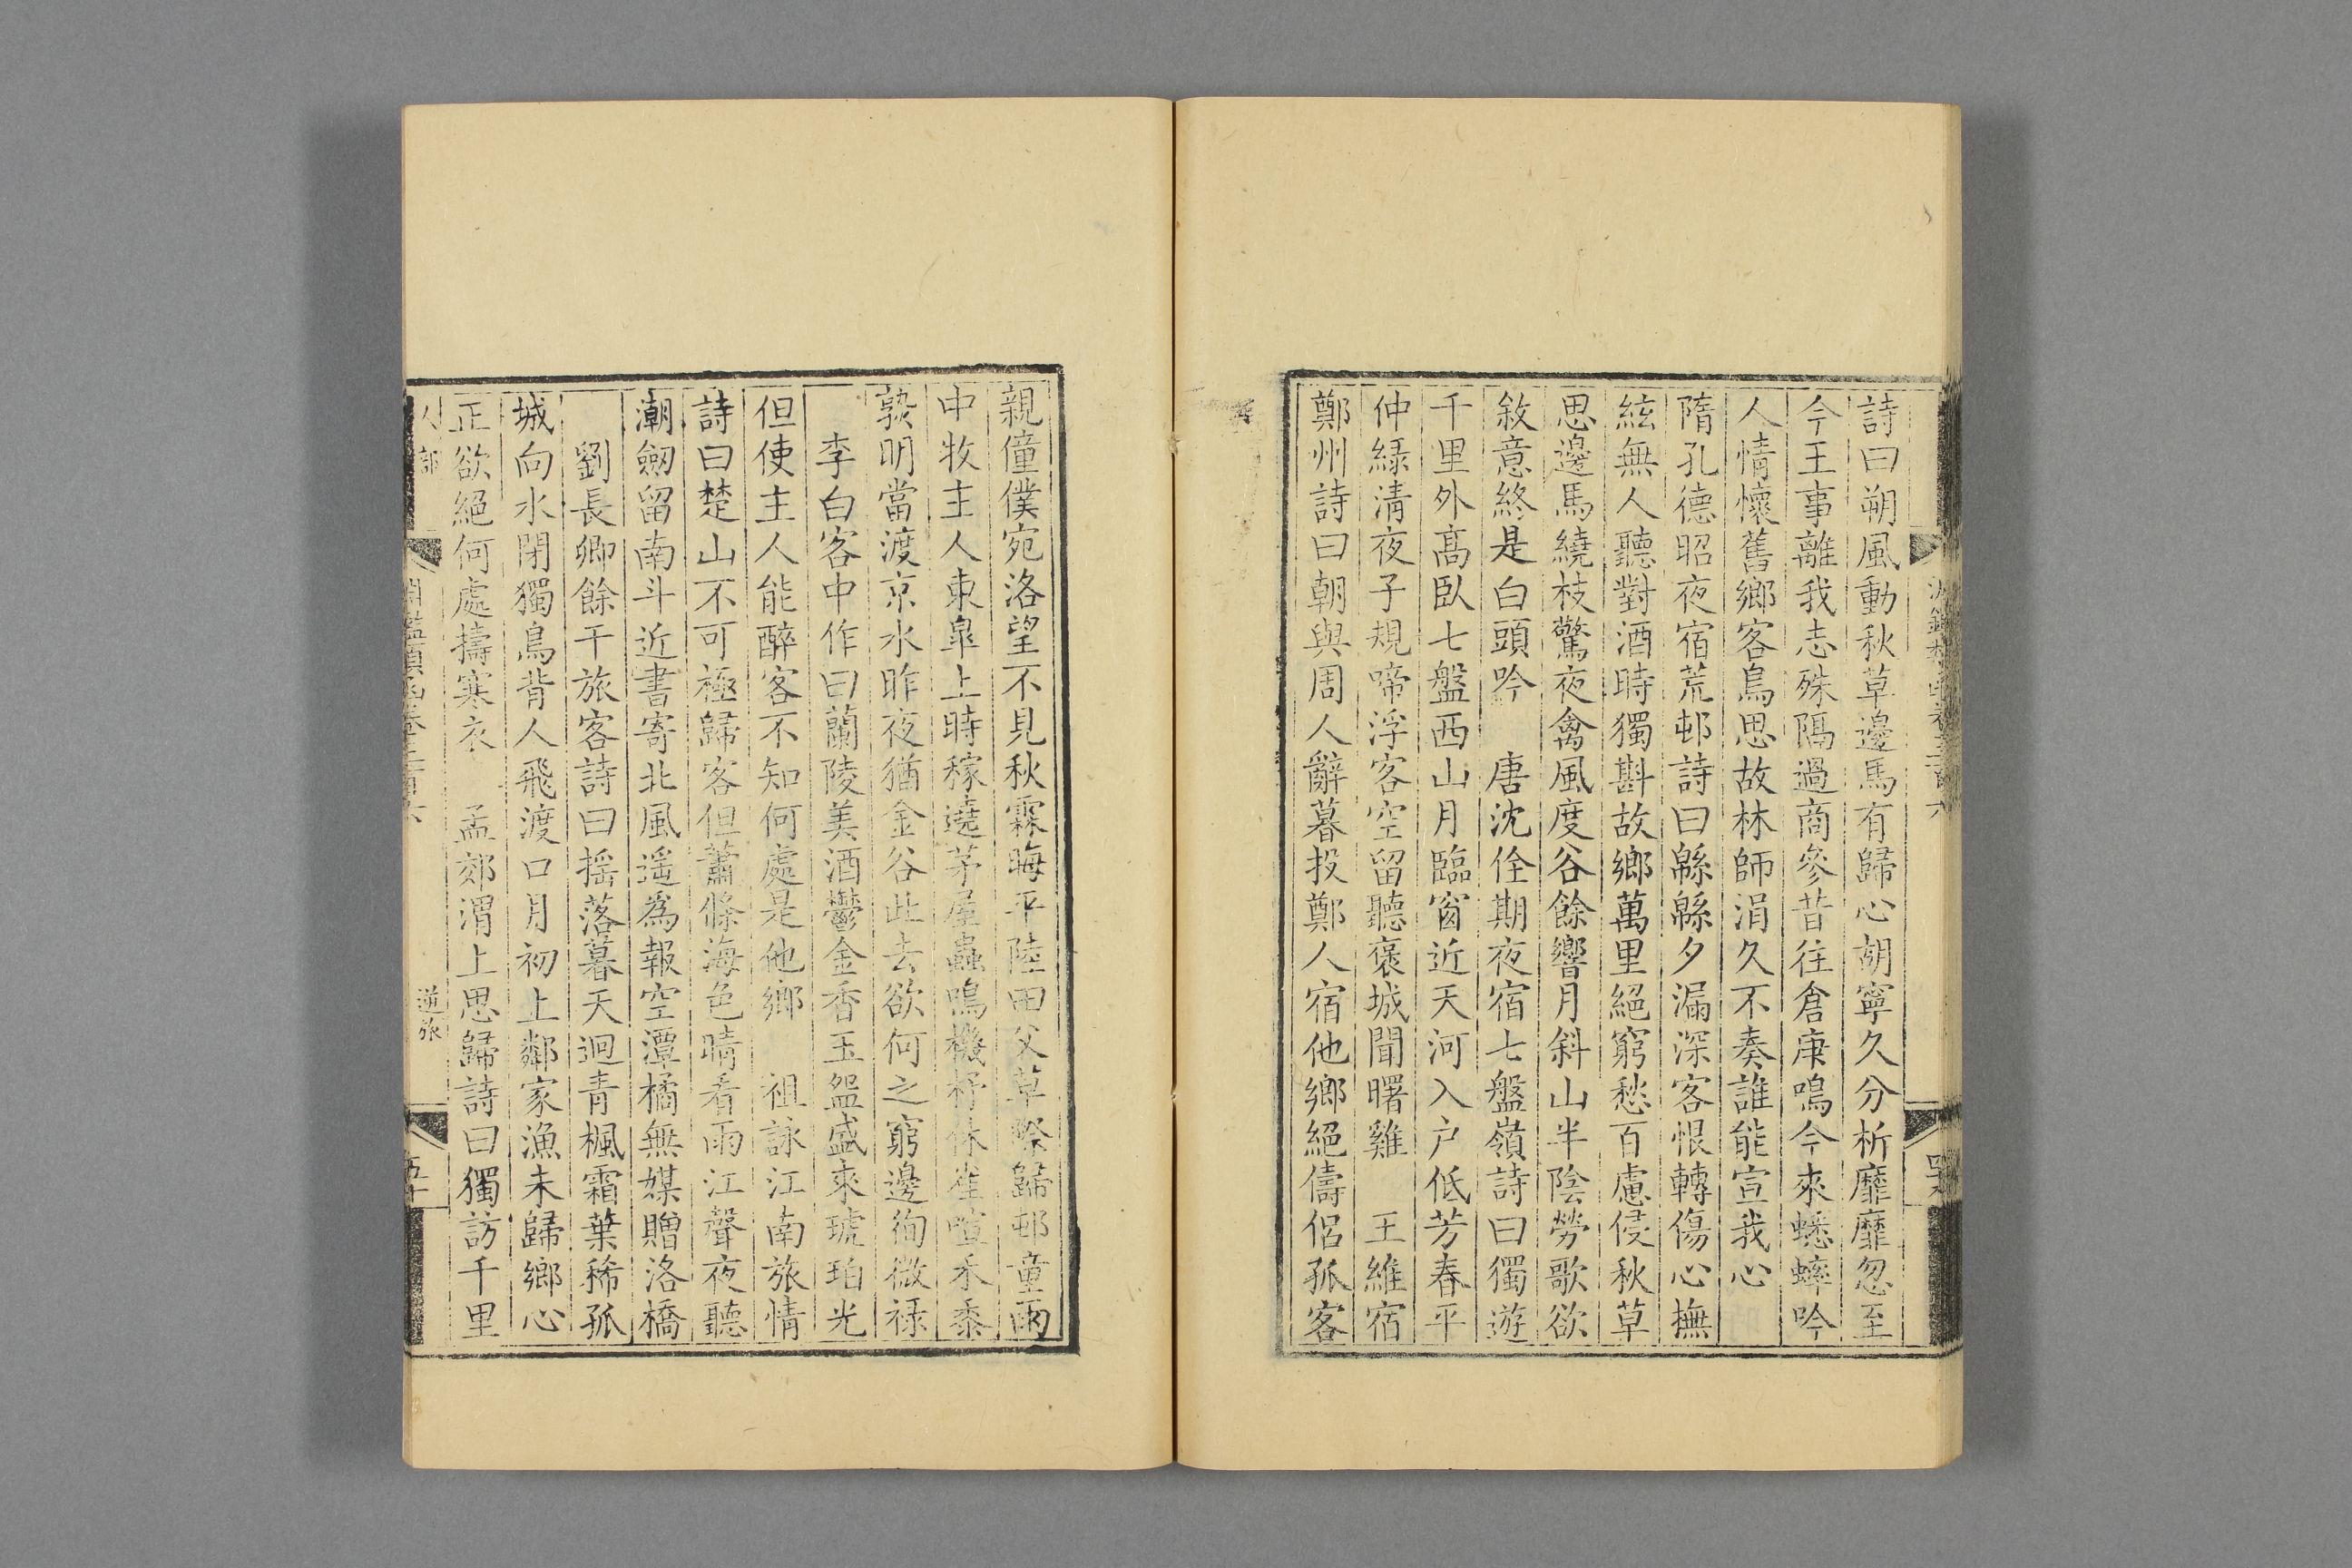 詩曰朔風動秋草邊馬有歸心胡寧久分析靡靡忽至
今王事離我志殊隔過商參昔往倉庚鳴今來蟋蟀吟
人情懷舊鄉客鳥思故林師涓久不奏誰能宣我心
隋孔德昭夜宿荒邨詩曰緜緜夕漏深客恨轉傷心撫
絃無人聽對酒時獨斟故鄉萬里絕窮愁百慮侵秋草
思邊馬繞枝驚夜禽風度谷餘響月斜山半陰勞歌欲
敘意終是白頭吟　唐沈佺期夜宿七盤嶺詩曰獨遊
千里外高臥七盤西山月臨窗近天河入户低芳春平
仲綠清夜子規啼浮客空留聽褒城聞曙雞　王維宿
鄭州詩曰朝與周人辭暮投鄭人宿他鄉絕儔侶孤客
親僮僕宛洛望不見秋霖晦平陸田父草際歸邨童雨
中牧主人東臯上時稼遶茅屋蟲鳴機杼休雀喧禾黍
熟明當渡京水昨夜猶金谷此去欲何之窮邊徇微祿
李白客中作曰蘭陵美酒鬱金香玉盌盛來琥珀光
但使主人能醉客不知何處是他鄉　祖詠江南旅情
詩曰楚山不可極歸客但蕭條海色晴看雨江聲夜聽
潮劒留南斗近書寄北風遥為報空潭橘無媒贈洛橋
劉長卿餘干旅客詩曰摇落暮天迥青楓霜葉稀孤
城向水閉獨鳥背人飛渡口月初上鄰家漁未歸鄉心
正欲絕何處擣寒衣　孟郊渭上思歸詩曰獨訪千里
人部
逆旅
五十